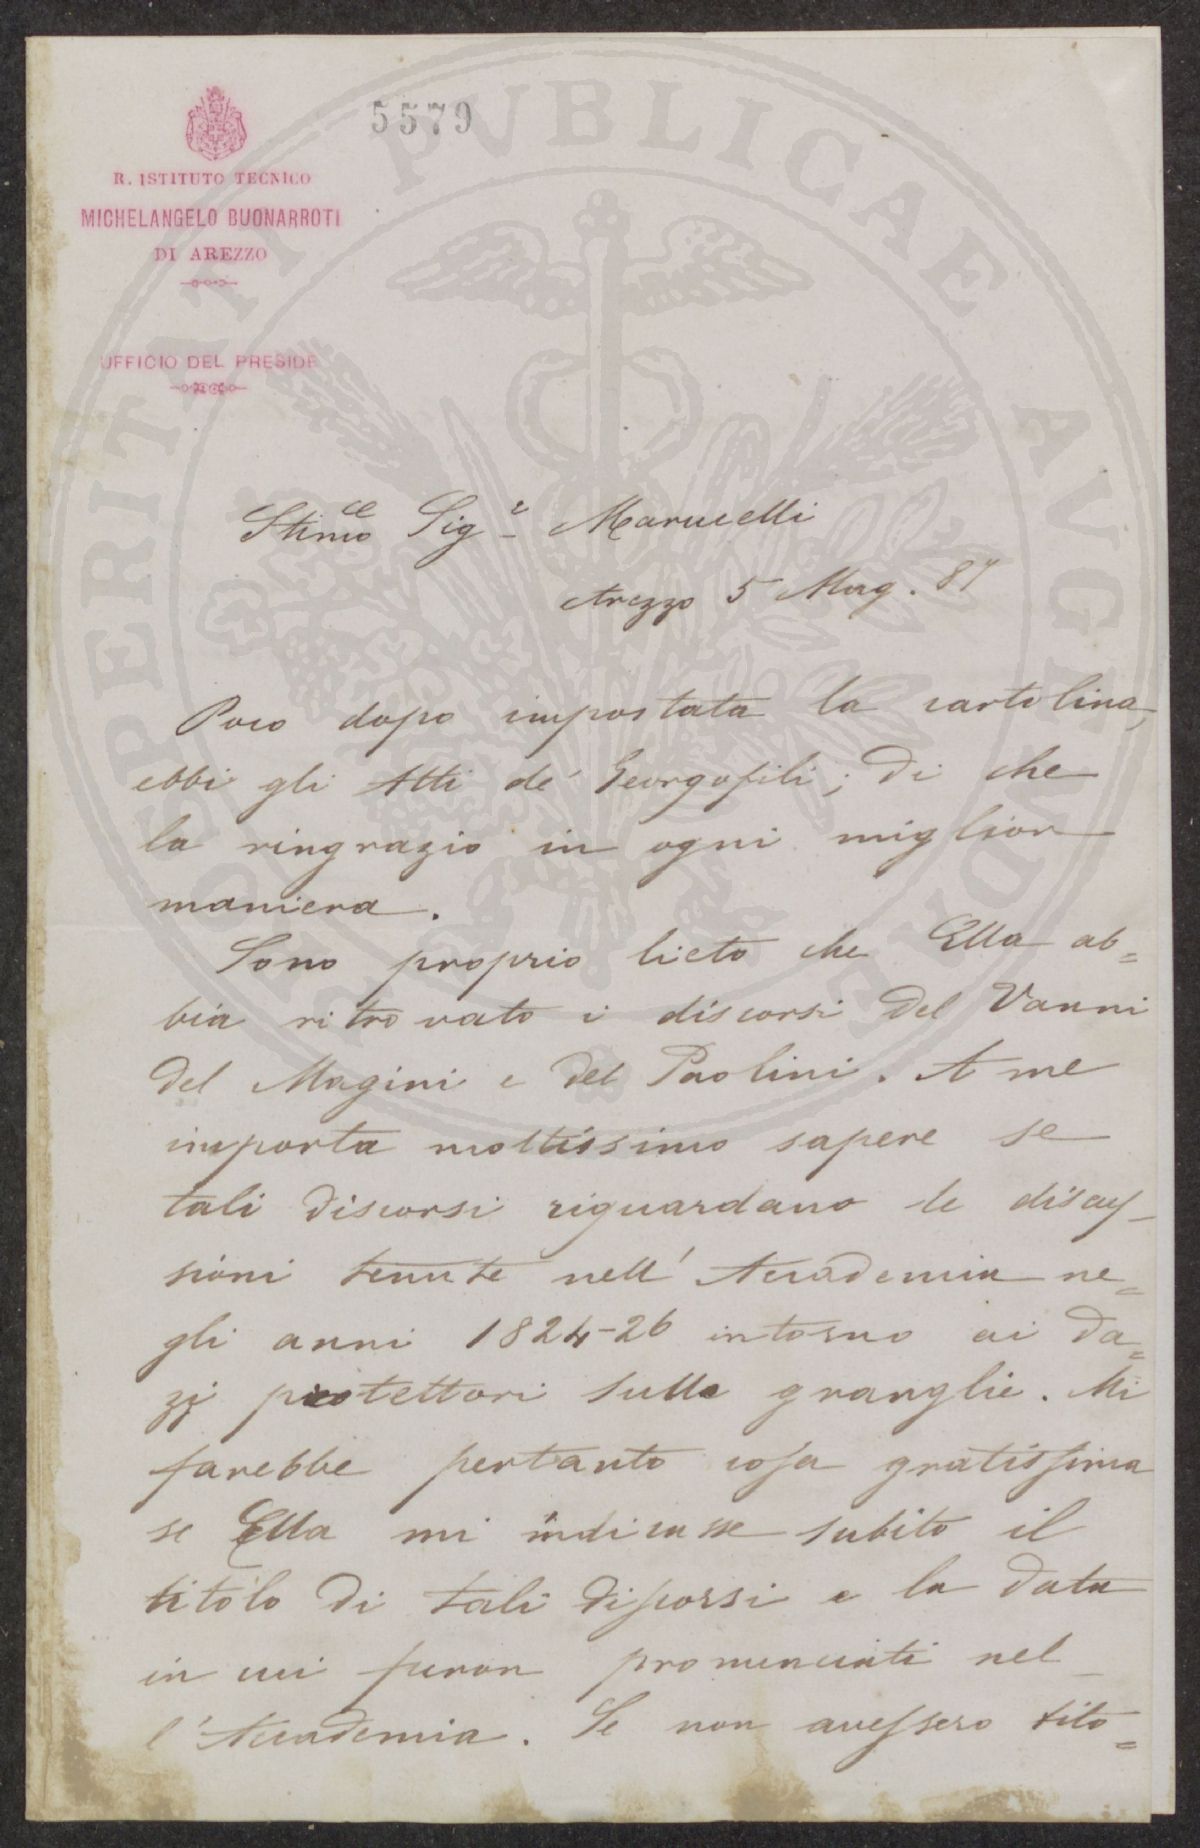 5579
R. ISTITUTO TECNICO
MICHELANGELO BUONARROTI
DI AREZZO
UFFICIO DEL PRESIDE
PROSPERITATI PVBLICAE AVGENDAE
Stimo Sigr Marucelli
Arezzo 5 Mag. 87
Poco dopo impostata la cartolina,
ebbi gli Atti de' Georgofili; di che
la ringrazio in ogni miglior
maniera.
Sono proprio lieto che Ella ab=
bia ritrovato i discorsi del Vanni
del Magini e del Paolini. A me
importa moltissimo sapere se
tali discorsi riguardano le discus-
sioni tenute nell'Accademia ne=
gli anni 1824-26 intorno ai da=
zj protettori sulle granglie. Mi
farebbe pertanto cosa gratissima
se Ella mi indicasse subito il
titolo di tali discorsi e la data
in cui furon pronunciati nel-
l'Accademia. Se non avessero tito=